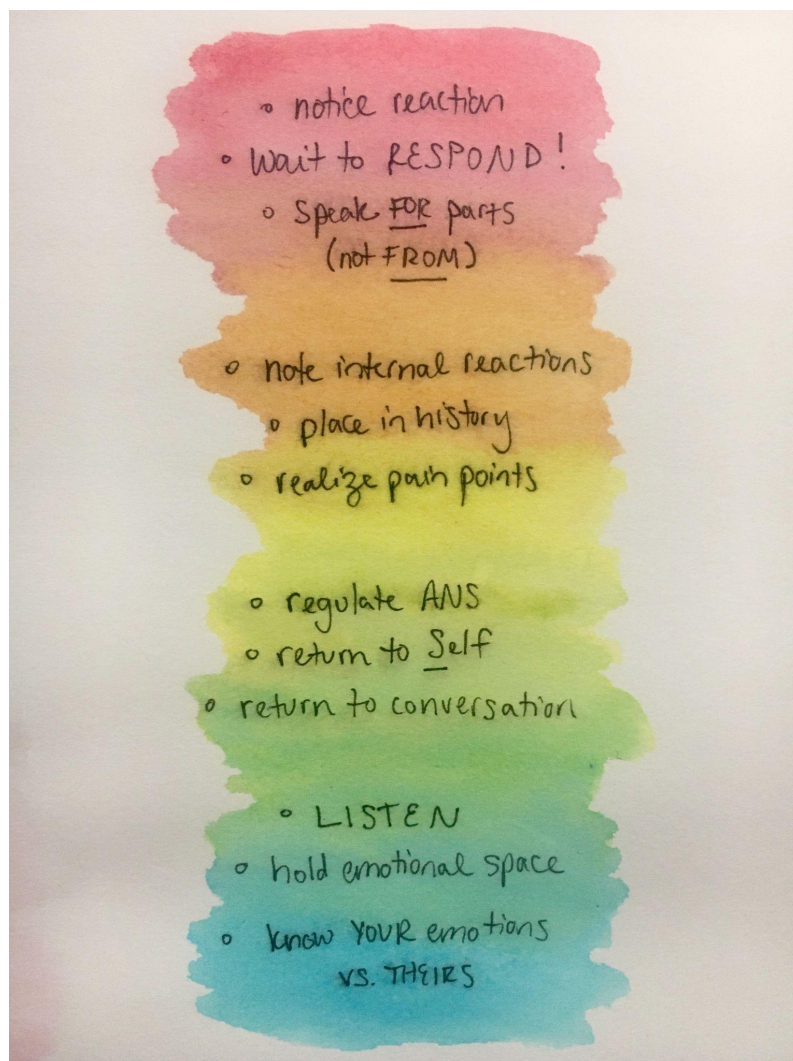 • notice reaction
• Wait to RESPOND!
• Speak FOR parts
(not FROM)
• note internal reactions
• place in history
• realize pain points
• regulate ANS
• return to Self
• return to conversation
• LISTEN
• hold emotional space
• know YOUR emotions
VS. THEIRS